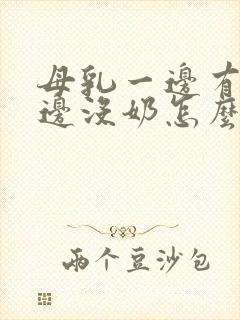 母乳一邊有
邊沒奶怎麼
兩个豆沙包